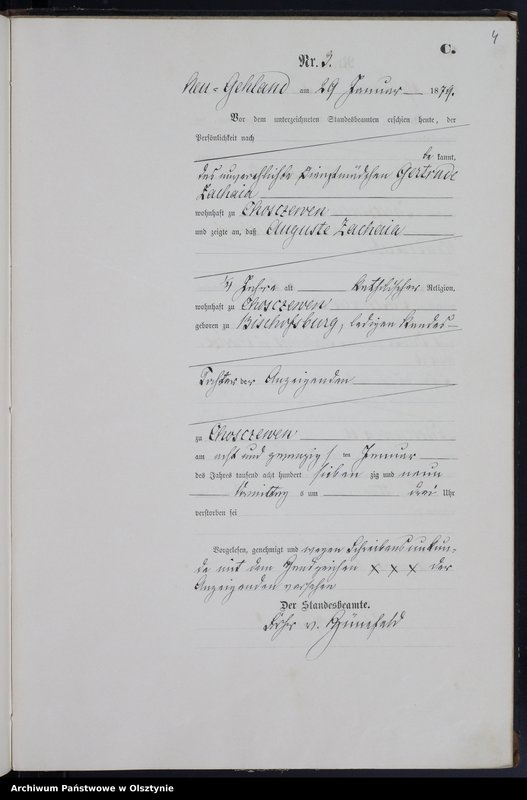 4
C.
Nr. 3.
Neu-Gehland am 29 Januar 1879.
Vor dem unterzeichneten Standesbeamten erschien heute, der
Persönlichkeit nach
be kannt,
das unverehlichte Dienstmädchen Gertrude
Zacharia
wohnhaft zu Choszewen
und zeigte an, daß Auguste Zacharia
Jahre alt katholischer Religion,
wohnhaft zu Choszewen
geboren zu Bischofsburg, ledigen Standes
Tochter der Anzeigenden
zu Choszewen
am acht und zwanzigst ten Januar
des Jahres tausend acht hundert sieben zig und neun
Vormittag s um drei Uhr
verstorben sei
Vorgelesen, genehmigt und wegen Schreibensunkun-
de mit dem Handzeichen x x x der
Anzeigenden versehen
Der Standesbeamte.
v. Grünefeld
Archiwum Państwowe w Olsztynie